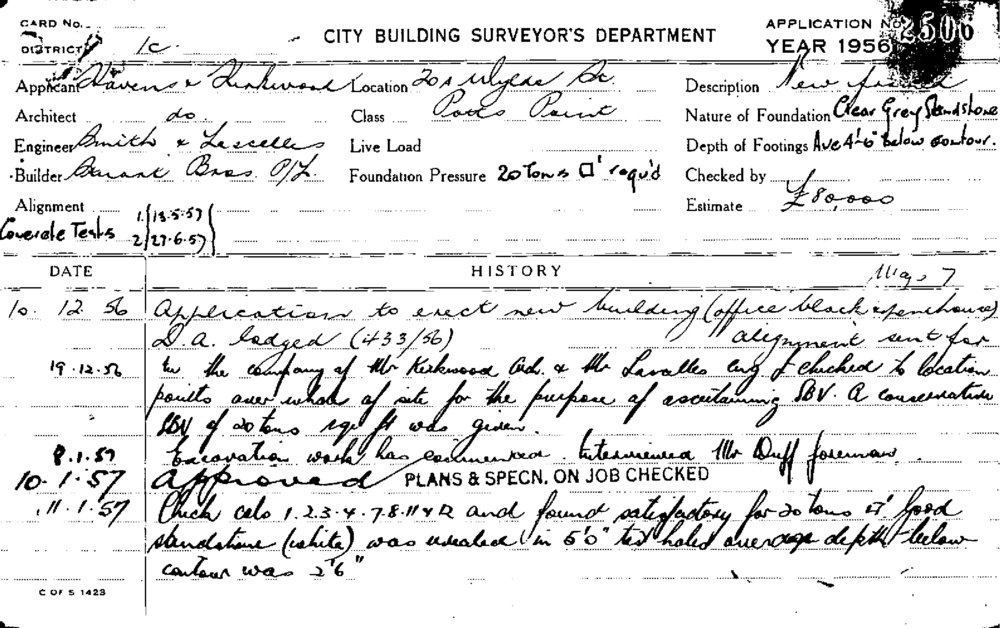 CARD No.
DISTRICT 1c.
CITY BUILDING SURVEYOR'S DEPARTMENT
APPLICATION No. 2506
YEAR 1956
Applicant Havens & Kirkwood Location 20A Wylde St. Description New
Architect do. Class Potts Point Nature of Foundation Clear Grey Sandstone
Engineer Smith & Lascelles Live Load Depth of Footings Ave 4'-6" below contour.
Builder Bros. P/L. Foundation Pressure 20 tons □' requ'd Checked by
Alignment Estimate £80,000
Concrete Tests 1. (13.5.57)
2. (27.6.57)
DATE HISTORY
10. 12 56 Application to erect new building (office block & penthouse)
D.A. lodged (433/56) alignment sent for
19.12.56 In the company of Mr Kirkwood & Mr Eng. I checked location
points over whole of site for the purpose of ascertaining SBV. A conservative
SBV of 20 tons sq ft was given.
8.1.57 Excavation work has commenced. Interviewed Mr Duff foreman.
10.1.57 Approved PLANS & SPECN. ON JOB CHECKED
11.1.57 Check cols 1.2.3.4.7.8.11 & 12 and found satisfactory for 20 tons □' Good
sandstone (white) was revealed in 5'0" test holes average depth below
contour was 2'6"
C OF S 1423